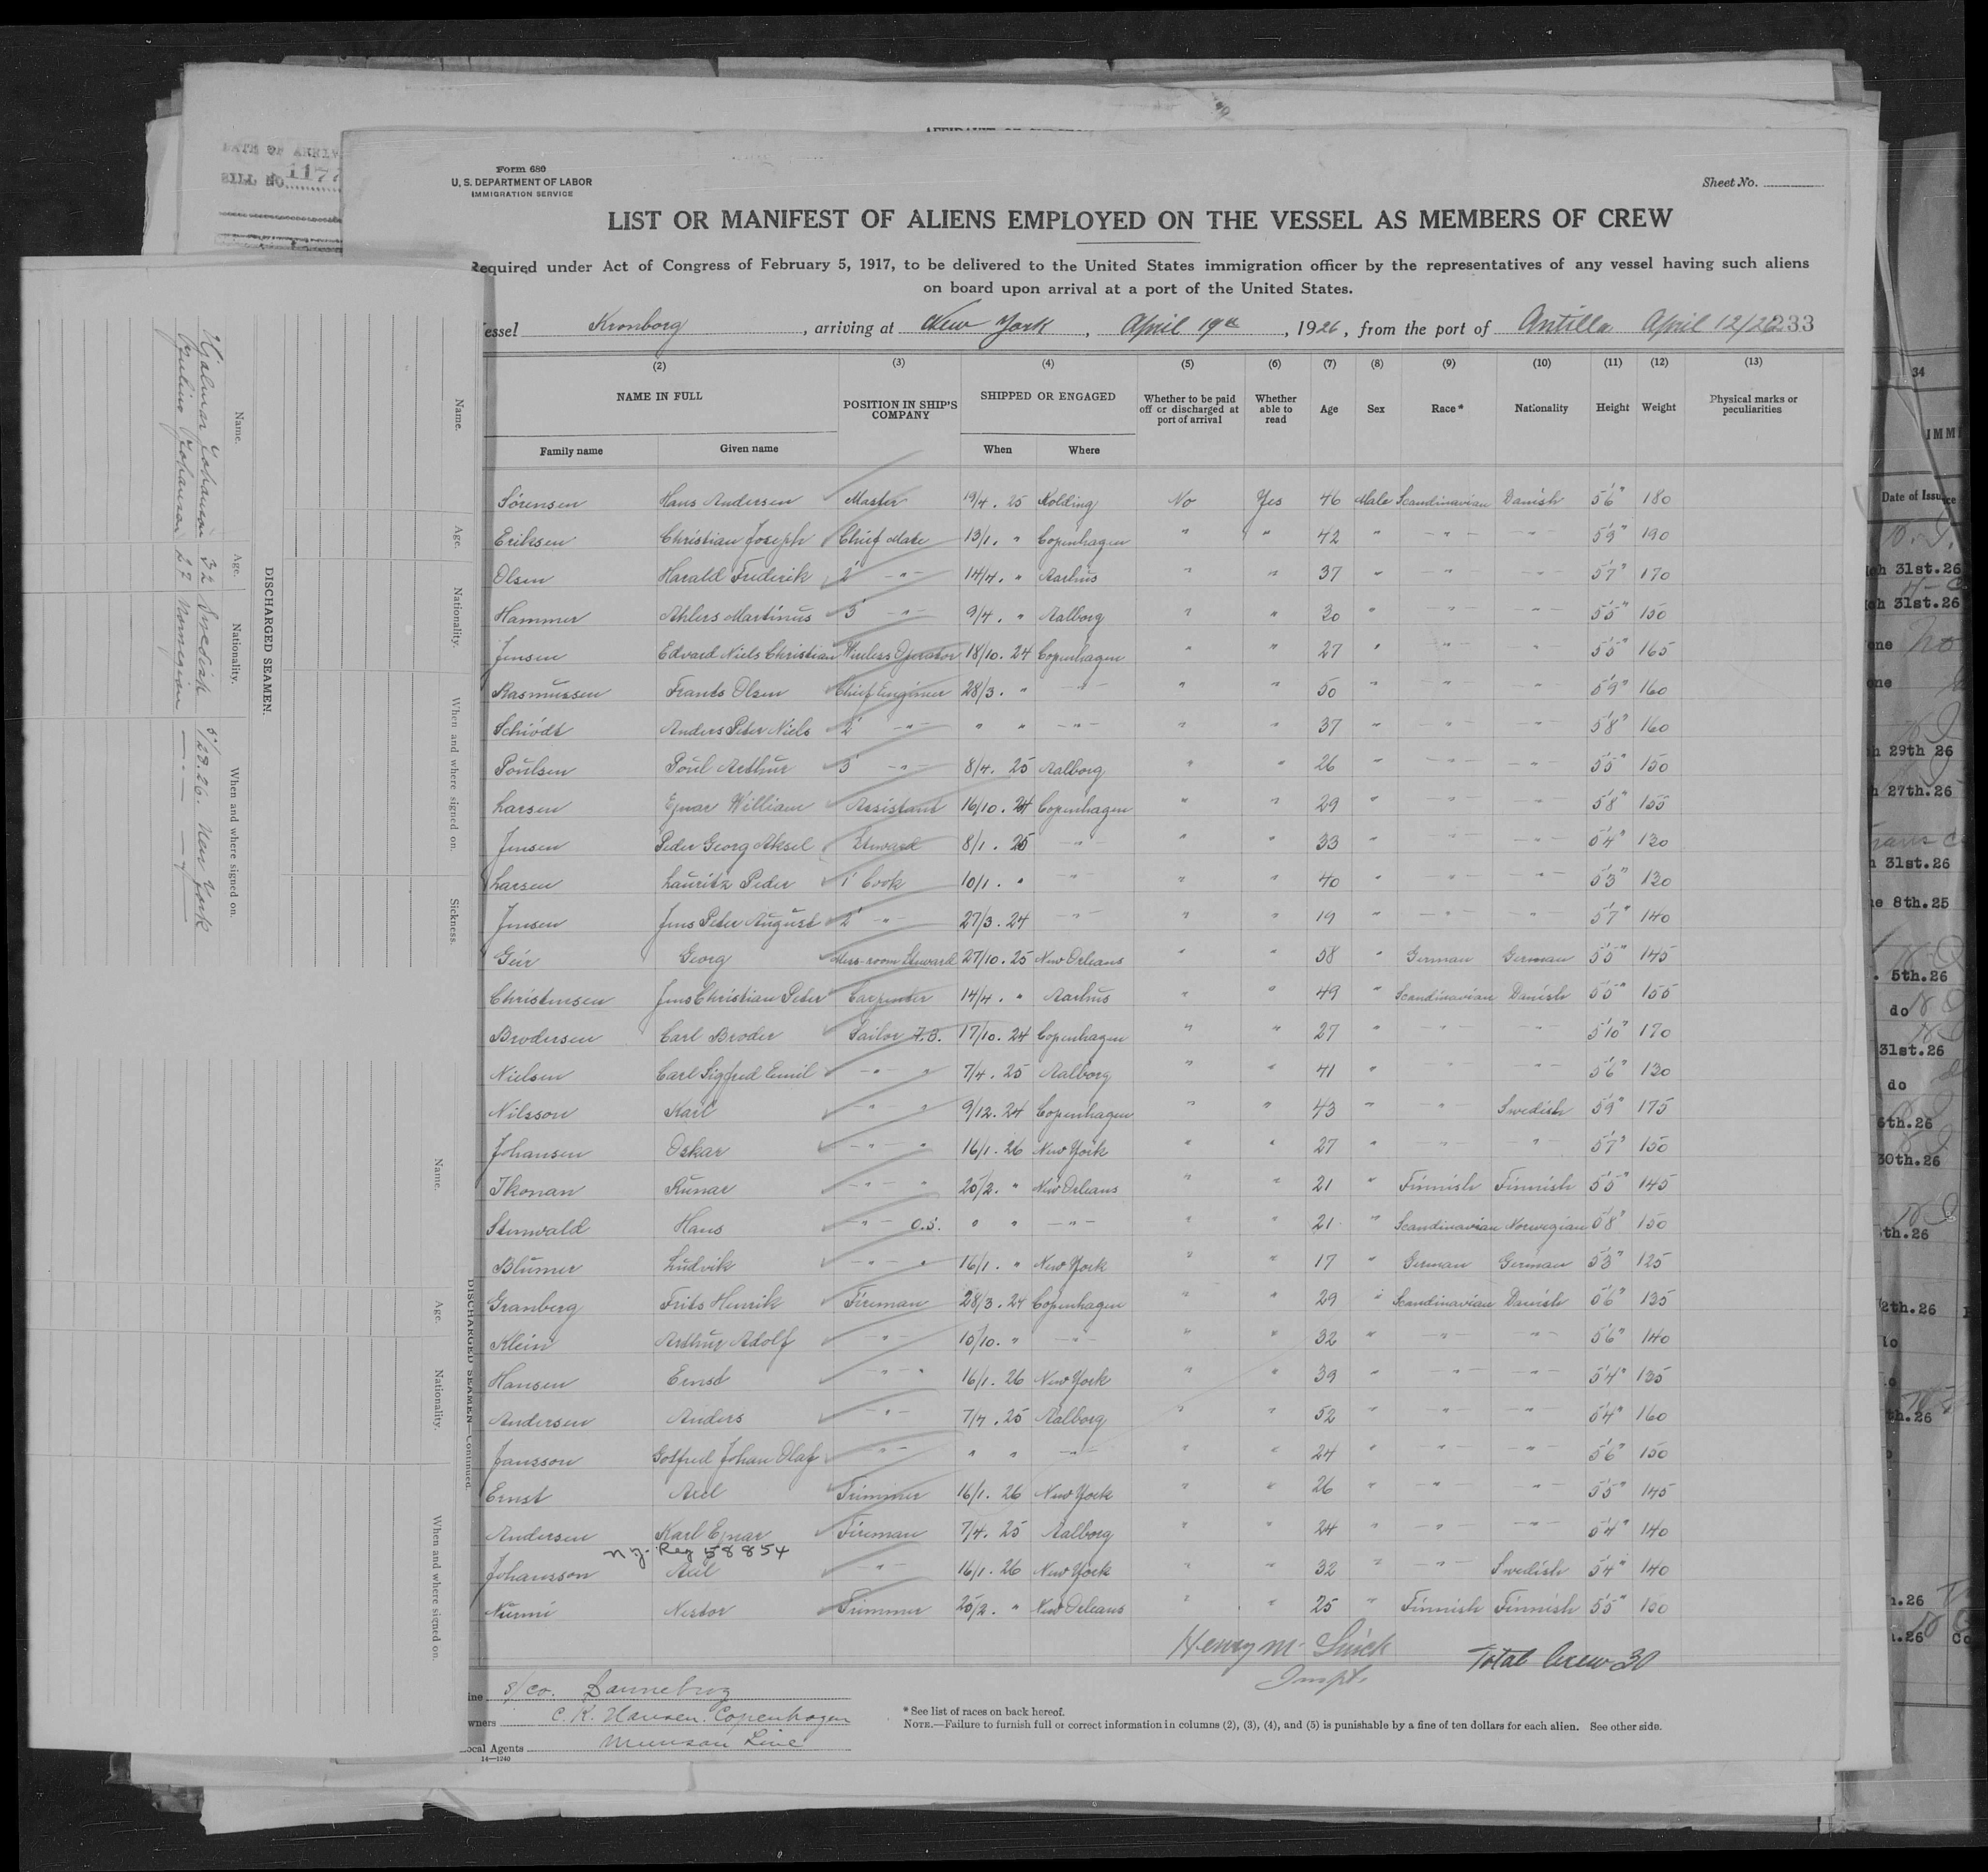 DATE OF ARRIV
BILL NO. 1177
Form 680
U. S. DEPARTMENT OF LABOR
IMMIGRATION SERVICE
Sheet No.
LIST OR MANIFEST OF ALIENS EMPLOYED ON THE VESSEL AS MEMBERS OF CREW
Required under Act of Congress of February 5, 1917, to be delivered to the United States immigration officer by the representatives of any vessel having such aliens
on board upon arrival at a port of the United States.
essel Kronborg, arriving at New York, April 19th, 1926, from the port of Antilla April 12/26 233
(2) (3) (4) (5) (6) (7) (8) (9) (10) (11) (12) (13)
NAME IN FULL POSITION IN SHIP'S COMPANY SHIPPED OR ENGAGED Whether to be paid off or discharged at port of arrival Whether able to read Age Sex Race* Nationality Height Weight Physical marks or peculiarities
Family name Given name When Where
Sørensen Hans Andersen Master 19/4. 25 Kolding No Yes 46 Male Scandinavian Danish 5'6" 180
Eriksen Christian Joseph Chief Mate 13/1. " Copenhagen " " 42 " " " 5'9" 190
Olsen Harald Frederik 2' " 14/4. " Aarhus " " 37 " " " 5'7" 170
Hammer Ahlers Martinus 3' " 9/4. " Aalborg " " 30 " " " 5'5" 150
Jensen Edvard Niels Christian Wireless Operator 18/10. 24 Copenhagen " " 27 " " " 5'5" 165
Rasmussen Frants Olsen Chief Engineer 28/3. " " " " 50 " " " 5'9" 160
Schiödt Anders Peter Niels 2' " " " " " " 37 " " " 5'8" 160
Poulsen Poul Arthur 3' " 8/4. 25 Aalborg " " 26 " " " 5'5" 150
Larsen Ejnar William Assistant 16/10. 24 Copenhagen " " 29 " " " 5'8" 155
Jensen Peder Georg Aksel Steward 8/1. 25 " " " 33 " " " 5'4" 130
Larsen Lauritz Peder 1' Cook 10/1. " " " " 40 " " " 5'3" 130
Jensen Jens Peter August 2' " 27/3. 24 " " " 19 " " " 5'7" 140
Geir Georg Mess-room Steward 27/10. 25 New Orleans " " 58 " German German 5'5" 145
Christensen Jens Christian Peter Carpenter 14/4. " Aarhus " " 49 " Scandinavian Danish 5'5" 155
Brodersen Carl Broder Sailor A.B. 17/10. 24 Copenhagen " " 27 " " " 5'10" 170
Nielsen Carl Sigfred Emil " " 7/4. 25 Aalborg " " 41 " " " 5'6" 130
Nilsson Karl " " 9/12. 24 Copenhagen " " 43 " " Swedish 5'9" 175
Johansen Oskar " " 16/1. 26 New York " " 27 " " " 5'7" 150
Ikonan Runar " " 25/2. " New Orleans " " 21 " Finnish Finnish 5'5" 145
Stenwald Hans " O.S. " " " " " 21 " Scandinavian Norwegian 5'8" 150
Blumer Ludvik " " 16/1. " New York " " 17 " German German 5'3" 125
Granberg Frits Henrik Fireman 28/3. 24 Copenhagen " " 29 " Scandinavian Danish 5'6" 135
Klein Arthur Adolf " 10/10. " " " " 32 " " " 5'6" 140
Hansen Ernst " " 16/1. 26 New York " " 39 " " " 5'4" 135
Andersen Anders " 7/4. 25 Aalborg " " 52 " " " 5'4" 160
Jansson Gotfred Johan Olaf " " " " " " 24 " " " 5'6" 150
Ernst Axel Trimmer 16/1. 26 New York " " 26 " " " 5'5" 145
Andersen Karl Ejnar Fireman 7/4. 25 Aalborg " " 24 " " " 5'4" 140
n.y. Reg 58854
Johansson Axel " 16/1. 26 New York " " 32 " " Swedish 5'4" 140
Nurmi Nestor Trimmer 25/2. " New Orleans " " 25 " Finnish Finnish 5'5"
Henry M.
Inspt.
Total Crew 30
ine S/Co. Dannebrog
wners C. K. Hansen. Copenhagen
ocal Agents Munson Line
14—1240
* See list of races on back hereof.
NOTE.—Failure to furnish full or correct information in columns (2), (3), (4), and (5) is punishable by a fine of ten dollars for each alien. See other side.
DISCHARGED SEAMEN.
Name. Age. Nationality. When and where signed on.
Hjalmar Johanson 32 Swedish 5/28.26. New York
Johanson 27 Norwegian
Name. Age. Nationality. When and where signed on. Sickness.
DISCHARGED SEAMEN—Continued.
Name. Age. Nationality. When and where signed on.
34
IMMI
Date of Issuance
ch 31st.26
ch 31st.26
one no
one
h 29th 26
h 27th.26
h 31st.26
ne 8th.25
. 5th.26
do
31st.26
do
6th.26
30th.26
th.26
2th.26
do
th.26
.26
.26 Co